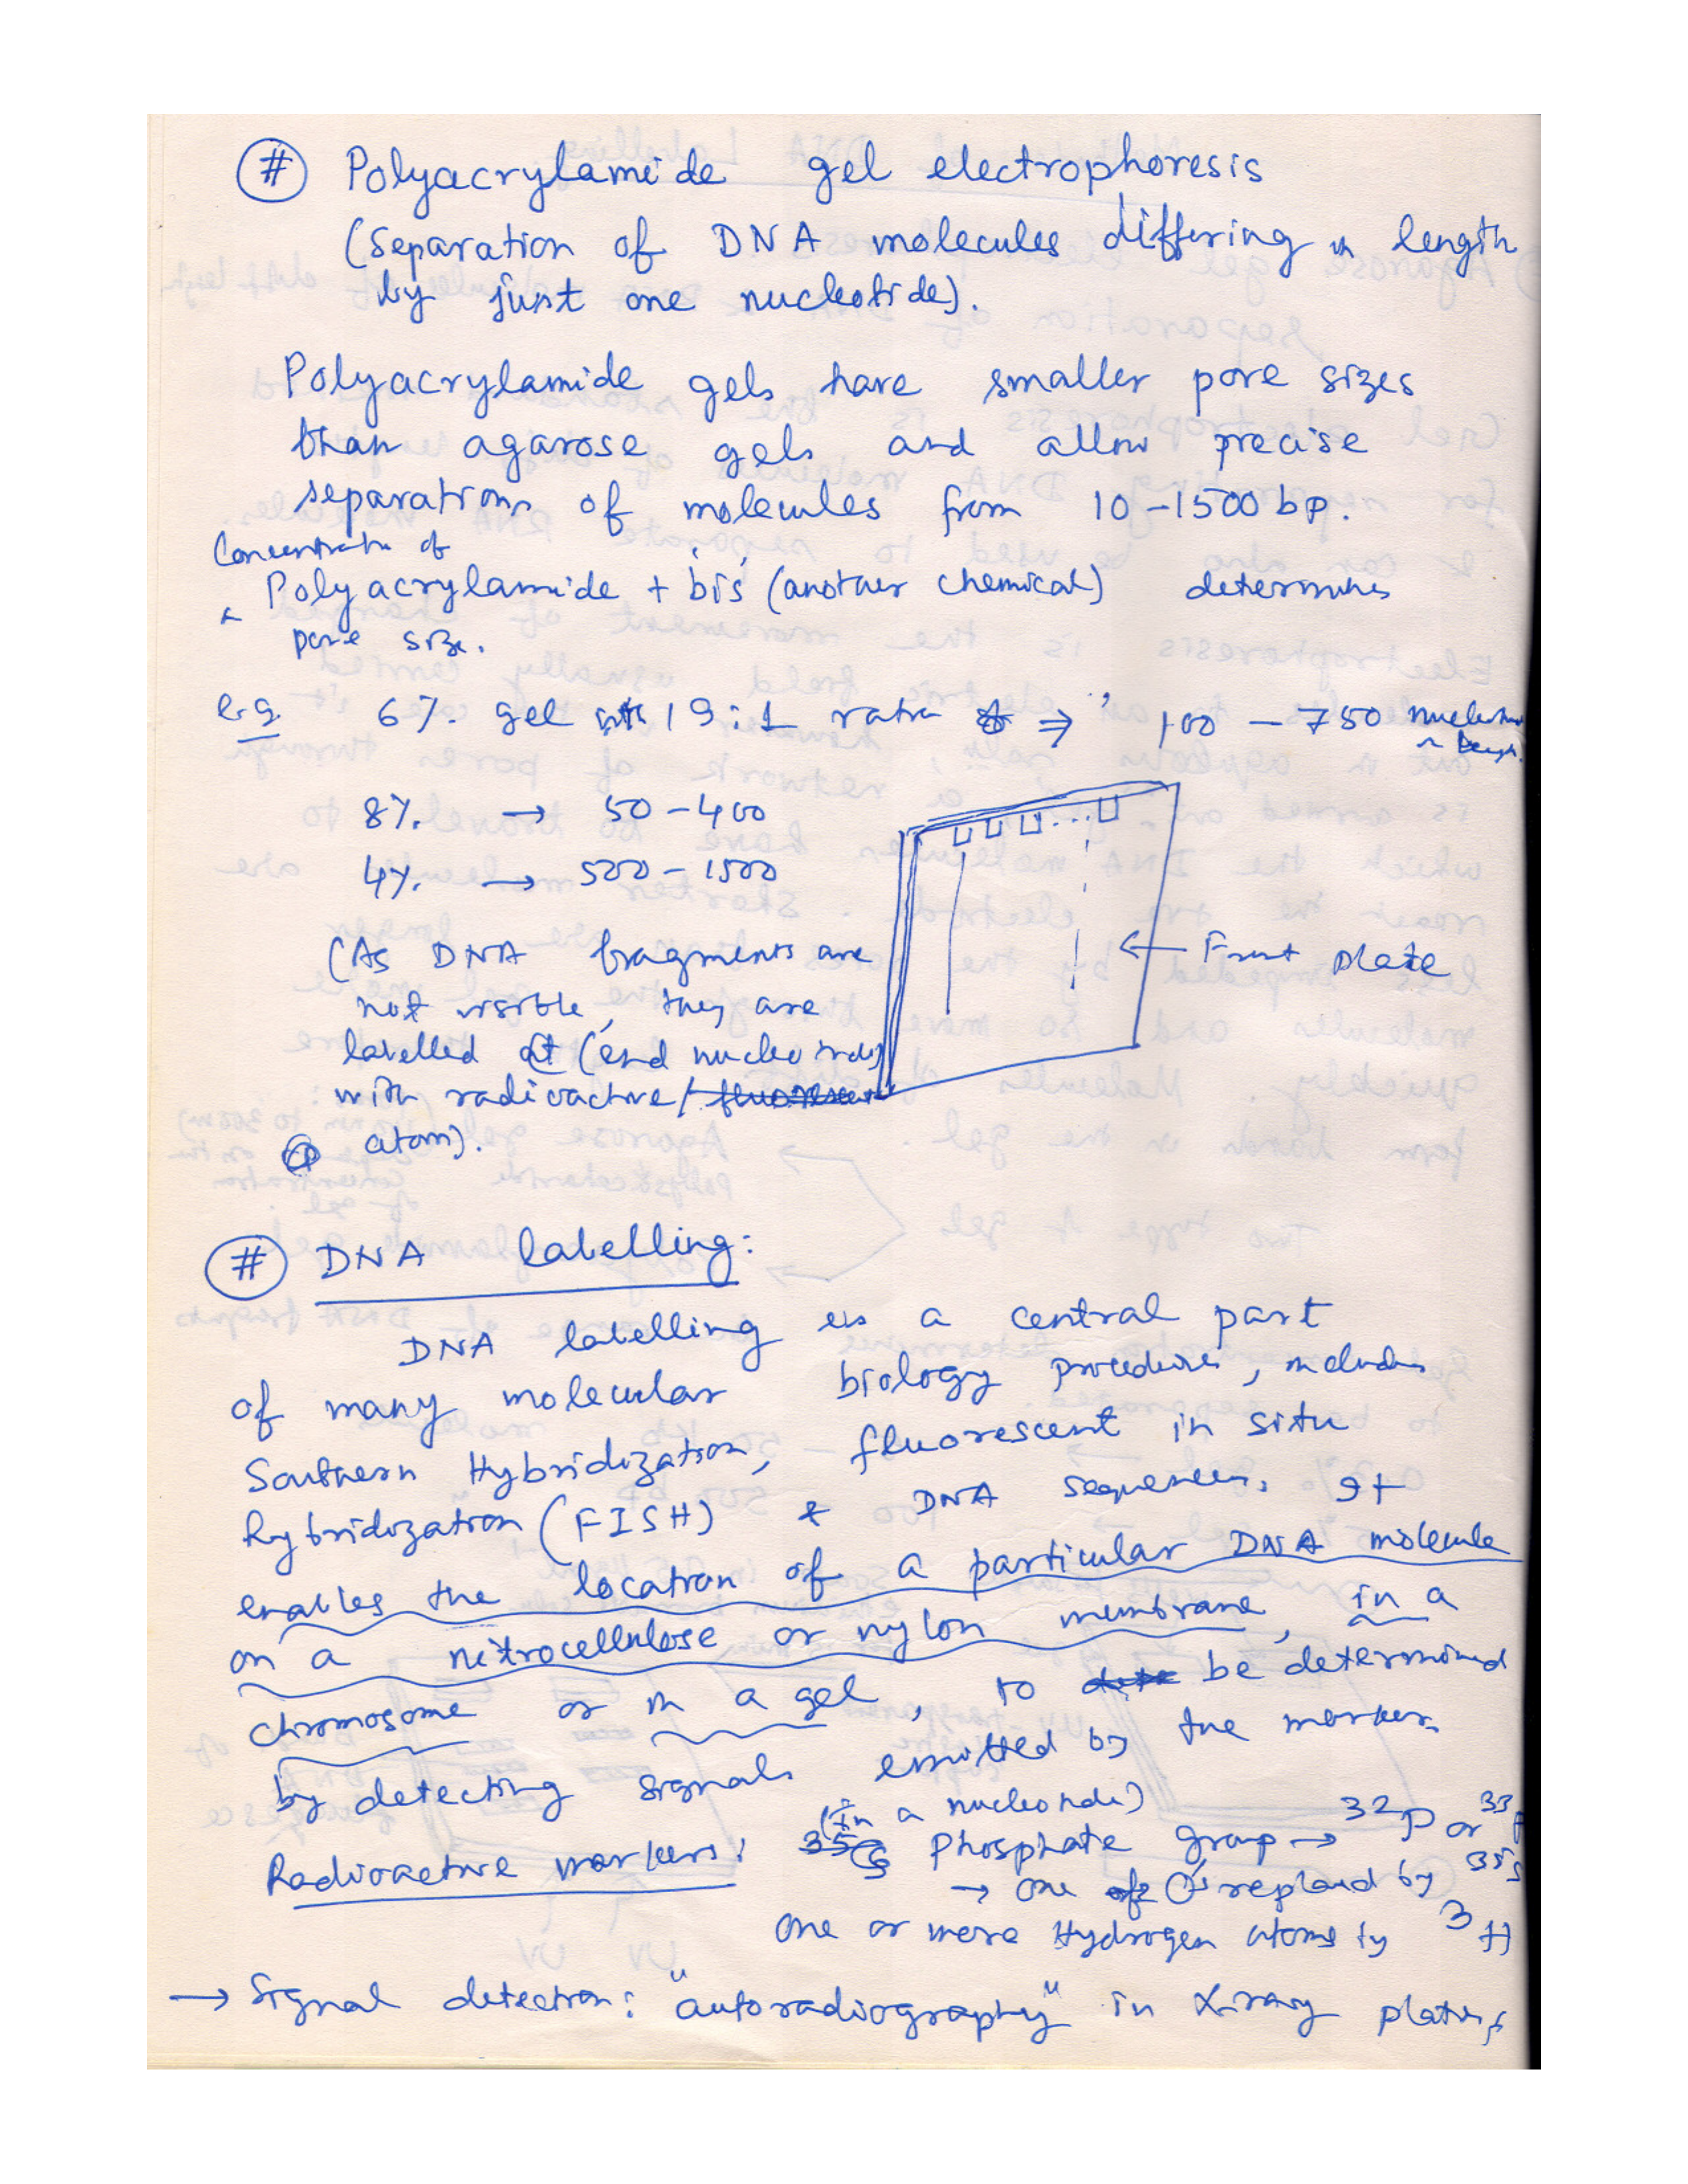 # Polyacrylamide gel electrophoresis
(Separation of DNA molecules differing in length
by just one nucleotide).
Polyacrylamide gels have smaller pore sizes
than agarose gels and allow precise
separations of molecules from 10-1500 bp.
Concentration of
Polyacrylamide + bis (another chemical) determines
pore size.
e.g. 6% gel with 19:1 ratio ⇒ 100 - 750 nucleotides
in length.
8% → 50-400
4% → 500-1500
(As DNA fragments are
not visible, they are
labelled at (end nucleotides)
with radioactive/fluorescent
atom).
← Front plate
# DNA labelling:
DNA labelling is a central part
of many molecular biology procedures, includes
Southern Hybridization, fluorescent in situ
hybridization (FISH) & DNA sequences. It
enables the location of a particular DNA molecule
on a nitrocellulose or nylon membrane, in a
chromosome or in a gel, to be determined
by detecting signals emitted by the markers.
(In a nucleotide)
Radioactive markers: 35S Phosphate group → 32P or 33P
→ one of O's replaced by 35S
One or more Hydrogen atoms by 3H
→ Signal detection: "autoradiography" in X-ray plates